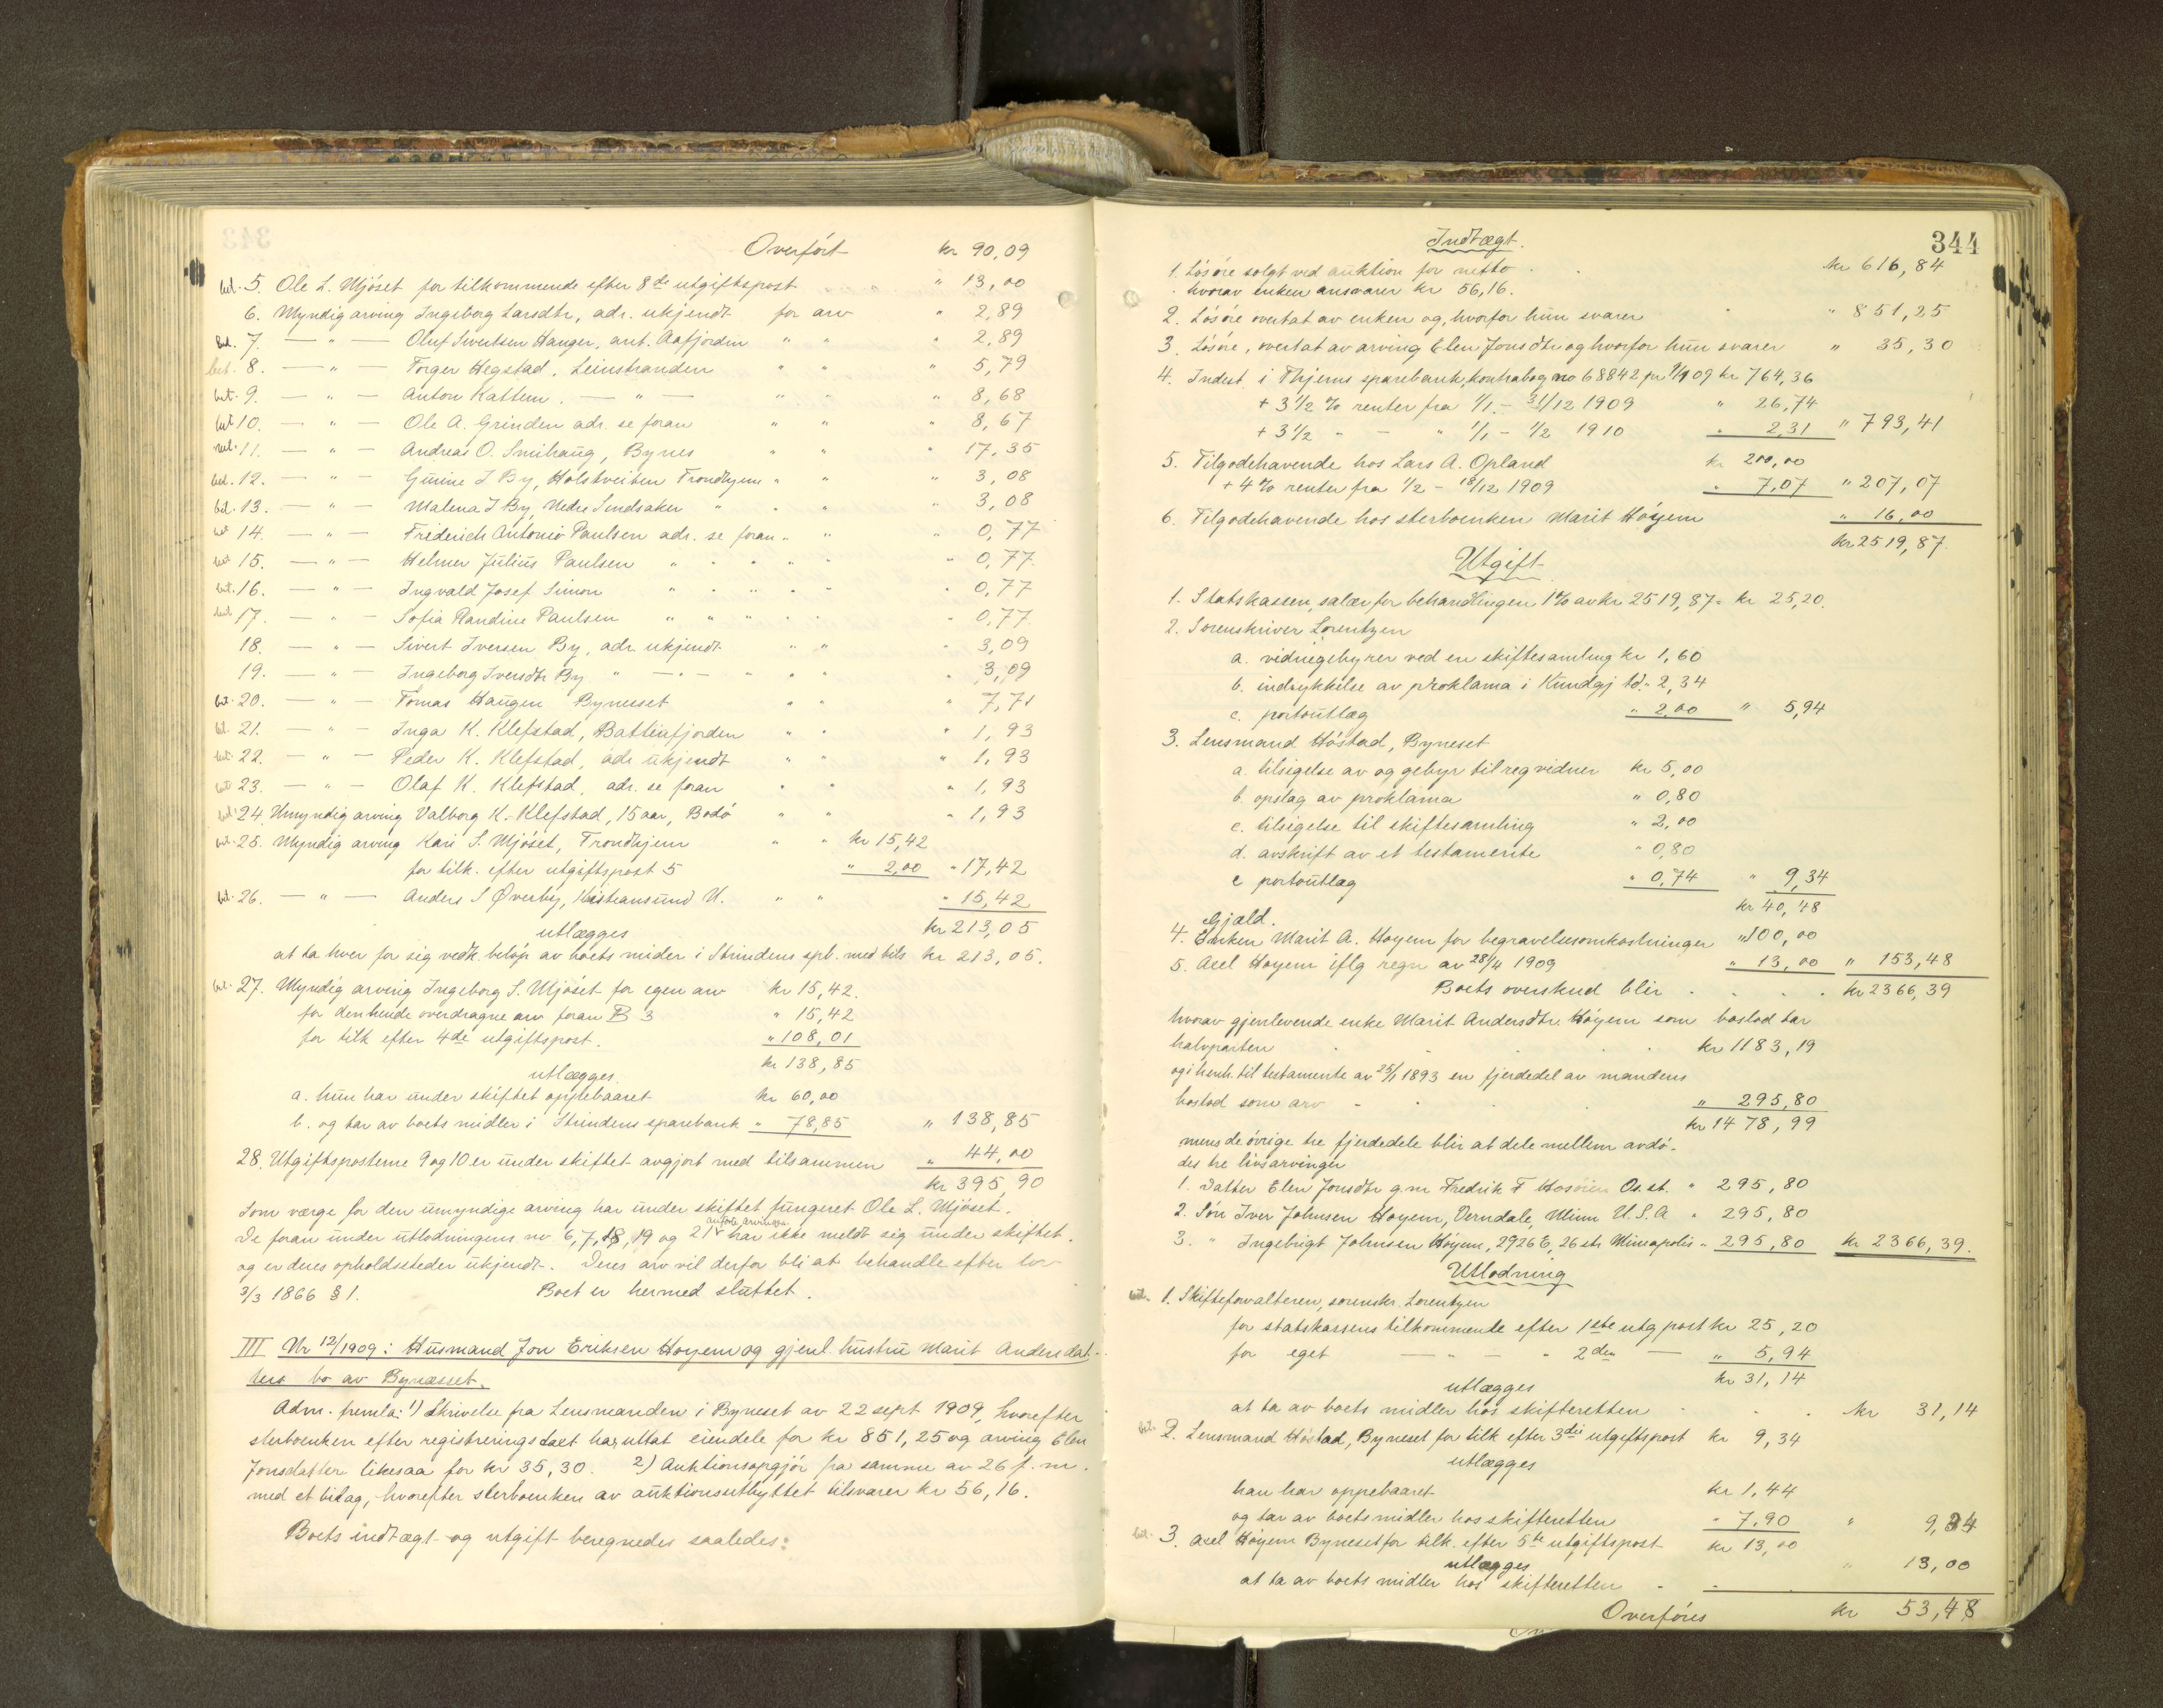 Overført kr 90,09
bet. 5. Ole L. Mjøset for tilkommende efter 8de utgiftspost " 13,00
6. Myndig arving Ingeborg Larsdtr, adr. ukjendt for arv " 2,89
bet. 7. — " — Oluf Sivertsen Hanger, ant. Aafjorden " " " 2,89
bet. 8. — " — Torger Hegstad, Leinstranden " " " 5,79
bet. 9. — " — Anton Kattem. — " — " " " 8,68
bet 10. — " — Ole A. Grinden adr. se foran " " " 8,67
bet. 11. — " — Andreas O. Smihaug, Bynes " " " 17,35
bet. 12. — " — Gurine I By, Holstveiten Trondhjem " " " 3,08
bet. 13. — " — Malena I By, Nedre Sindsaker " " " 3,08
bet 14. — " — Friderich Antonio Paulsen adr. se foran " " " 0,77
bet 15. — " — Helmer Julius Paulsen " " " " " 0,77
bet. 16. — " — Ingvald Josef Simon " " " " " 0,77
bet. 17. — " — Sofia Randine Paulsen " " " " " 0,77
18. — " — Sivert Iversen By, adr. ukjendt " " 3,09
19. — " — Ingeborg Iversdtr By " — " — " " " 3,09
bet. 20. — " — Tomas Haugen Bynesset " " " 7,71
bet. 21. — " — Inga K. Klefstad, Battenfjorden " " " 1,93
bet. 22. — " — Peder K. Klefstad, adr ukjendt " " " 1,93
bet 23. — " — Olaf K. Klefstad, adr. se foran " " " 1,93
bet. 24. Umyndig arving Valborg K. Klefstad, 15 aar, Bodø " " " 1,93
bet. 25. Myndig arving Kari S. Mjøset, Trondhjem " " kr 15,42
for tilk. efter utgiftspost 5 " 2,00 " 17,42
bet. 26. — " — Anders S Øverby, Kristiansund N. " " " 15,42
utlægges kr 213,05
at ta hver for sig vedk. beløp av boets midler i Strindens spb. med tils kr 213,05.
bet. 27. Myndig arving Ingeborg S. Mjøset for egen arv kr 15,42.
for den hende overdragne arv foran B 3 " 15,42
for tilk efter 4de utgiftspost. " 108,01
kr 138,85
utlægges.
a. hun har under skiftet oppebaaret kr 60,00
b. og tar av boets midler i Strindens sparebank " 78,85 " 138,85
28. Utgiftsposterne 9 og 10 er under skiftet avgjort med tilsammen " 44,00
kr 395,90
Som værge for den umyndige arving har under skiftet fungeret Ole L. Mjøset.
anførte arvinger
De foran under utlodningens no 6, 7, 18, 19 og 21 har ikke meldt sig under skiftet.
og er deres opholdssteder ukjendt. Deres arv vil derfor bli at behandle efter lov
3/3 1866 § 1. Boet er hermed sluttet.
III Nr 12/1909: Husmand Jon Eriksen Høyem og gjenl. hustru Marit Andersdat-
ters bo av Bynæsset.
Adm. fremla: 1) Skrivelse fra Lensmanden i Byneset av 22 sept 1909, hvorefter
sterboenken efter registreringstaxt har uttat eiendele for kr 851,25 og arving Elen
Jonsdatter likesaa for kr 35,30. 2) Auktionsopgjør fra samme av 26 f. m.
med et bilag, hvorefter sterboenken av auktionsutbyttet tilsvarer kr 56,16.
Boets indtægt og utgift beregnedes saaledes:
344
Indtægt.
1. Løsøre solgt ved auktion for netto kr 616,84
hvorav enken ansvarer kr 56,16.
2. Løsøre overtat av enken og, hvorfor hun svarer " " 851,25
3. Løsøre, overtat av arving Elen Jonsdtr og hvorfor hun svarer " 35,30
4. Indest. i Thjems sparebank, kontrabog no 68842 pr 1/1 09 kr 764,36
+ 3 1/2 % renter fra 1/1 - 31/12 1909 " 26,74
+ 3 1/2 " - " 1/1 - 1/2 1910 " 2,31 " 793,41
5. Tilgodehavende hos Lars A. Opland kr 200,00
+ 4 % renter fra 1/2 - 18/12 1909 " 7,07 " 207,07
6. Tilgodehavende hos sterboenken Marit Høyem " 16,00
kr 2519,87.
Utgift
1. Statskassen, salær for behandlingen 1% av kr 2519,87 = kr 25,20.
2. Sorenskriver Lorentzen
a. vidnegebyrer ved en skiftesamling kr 1,60
b. indrykkelse av proklama i Kundgj td. " 2,34
c. portoutlæg " 2,00 " 5,94
3. Lensmand Høstad, Byneset
a. tilsigelse av og gebyr til reg vidner kr 5,00
b. opslag av proklama " 0,80
c. tilsigelse til skiftesamling " 2,00
d. avskrift av et testamente " 0,80
e portoutlæg " 0,74 " 9,34
kr 40,48
Gjæld.
4. Enken Marit A. Høyem for begravelsesomkostninger " 100,00
5. Axel Høyem iflg regn av 28/4 1909 " 13,00 " 153,48
Boets overskud blir . . . . kr 2366,39
hvorav gjenlevende enke Marit Andersdtr. Høyem som boslod tar
halvparten . . . kr 1183,19
og i henh. til testamente av 25/1 1893 en fjerdedel av mandens
boslod som arv - . . " 295,80
kr 1478,99
mens de øvrige tre fjerdedele blir at dele mellem avdø-
des tre livsarvinger
1. Datter Elen Jonsdtr g.m. Fredrik F. Os. st. " 295,80
2. Søn Iver Johnsen Høyem, Verndale, Minn U.S.A " 295,80
3. " Ingebrigt Johnsen Høyem, 2926 E, 26 str Mineapolis " 295,80 kr 2366,39.
Utlodning
bet. 1. Skifteforvalteren, sorenskr. Lorentzen
for statskassens tilkommende efter 1ste utg post kr 25,20
for eget — " — " 2den — " 5,94
kr 31,14
utlægges
at ta av boets midler hos skifteretten . . kr 31,14
bet. 2. Lensmand Høstad, Byneset for tilk efter 3die utgiftspost kr 9,34
utlægges
han har oppebaaret kr 1,44
og tar av boets midler hos skifteretten " 7,90 " 9,34
bet. 3. Axel Høyem Byneset for tilk. efter 5te utgiftspost kr 13,00
utlægges
at ta av boets midler hos skifteretten . " 13,00
Overføres kr 53,48